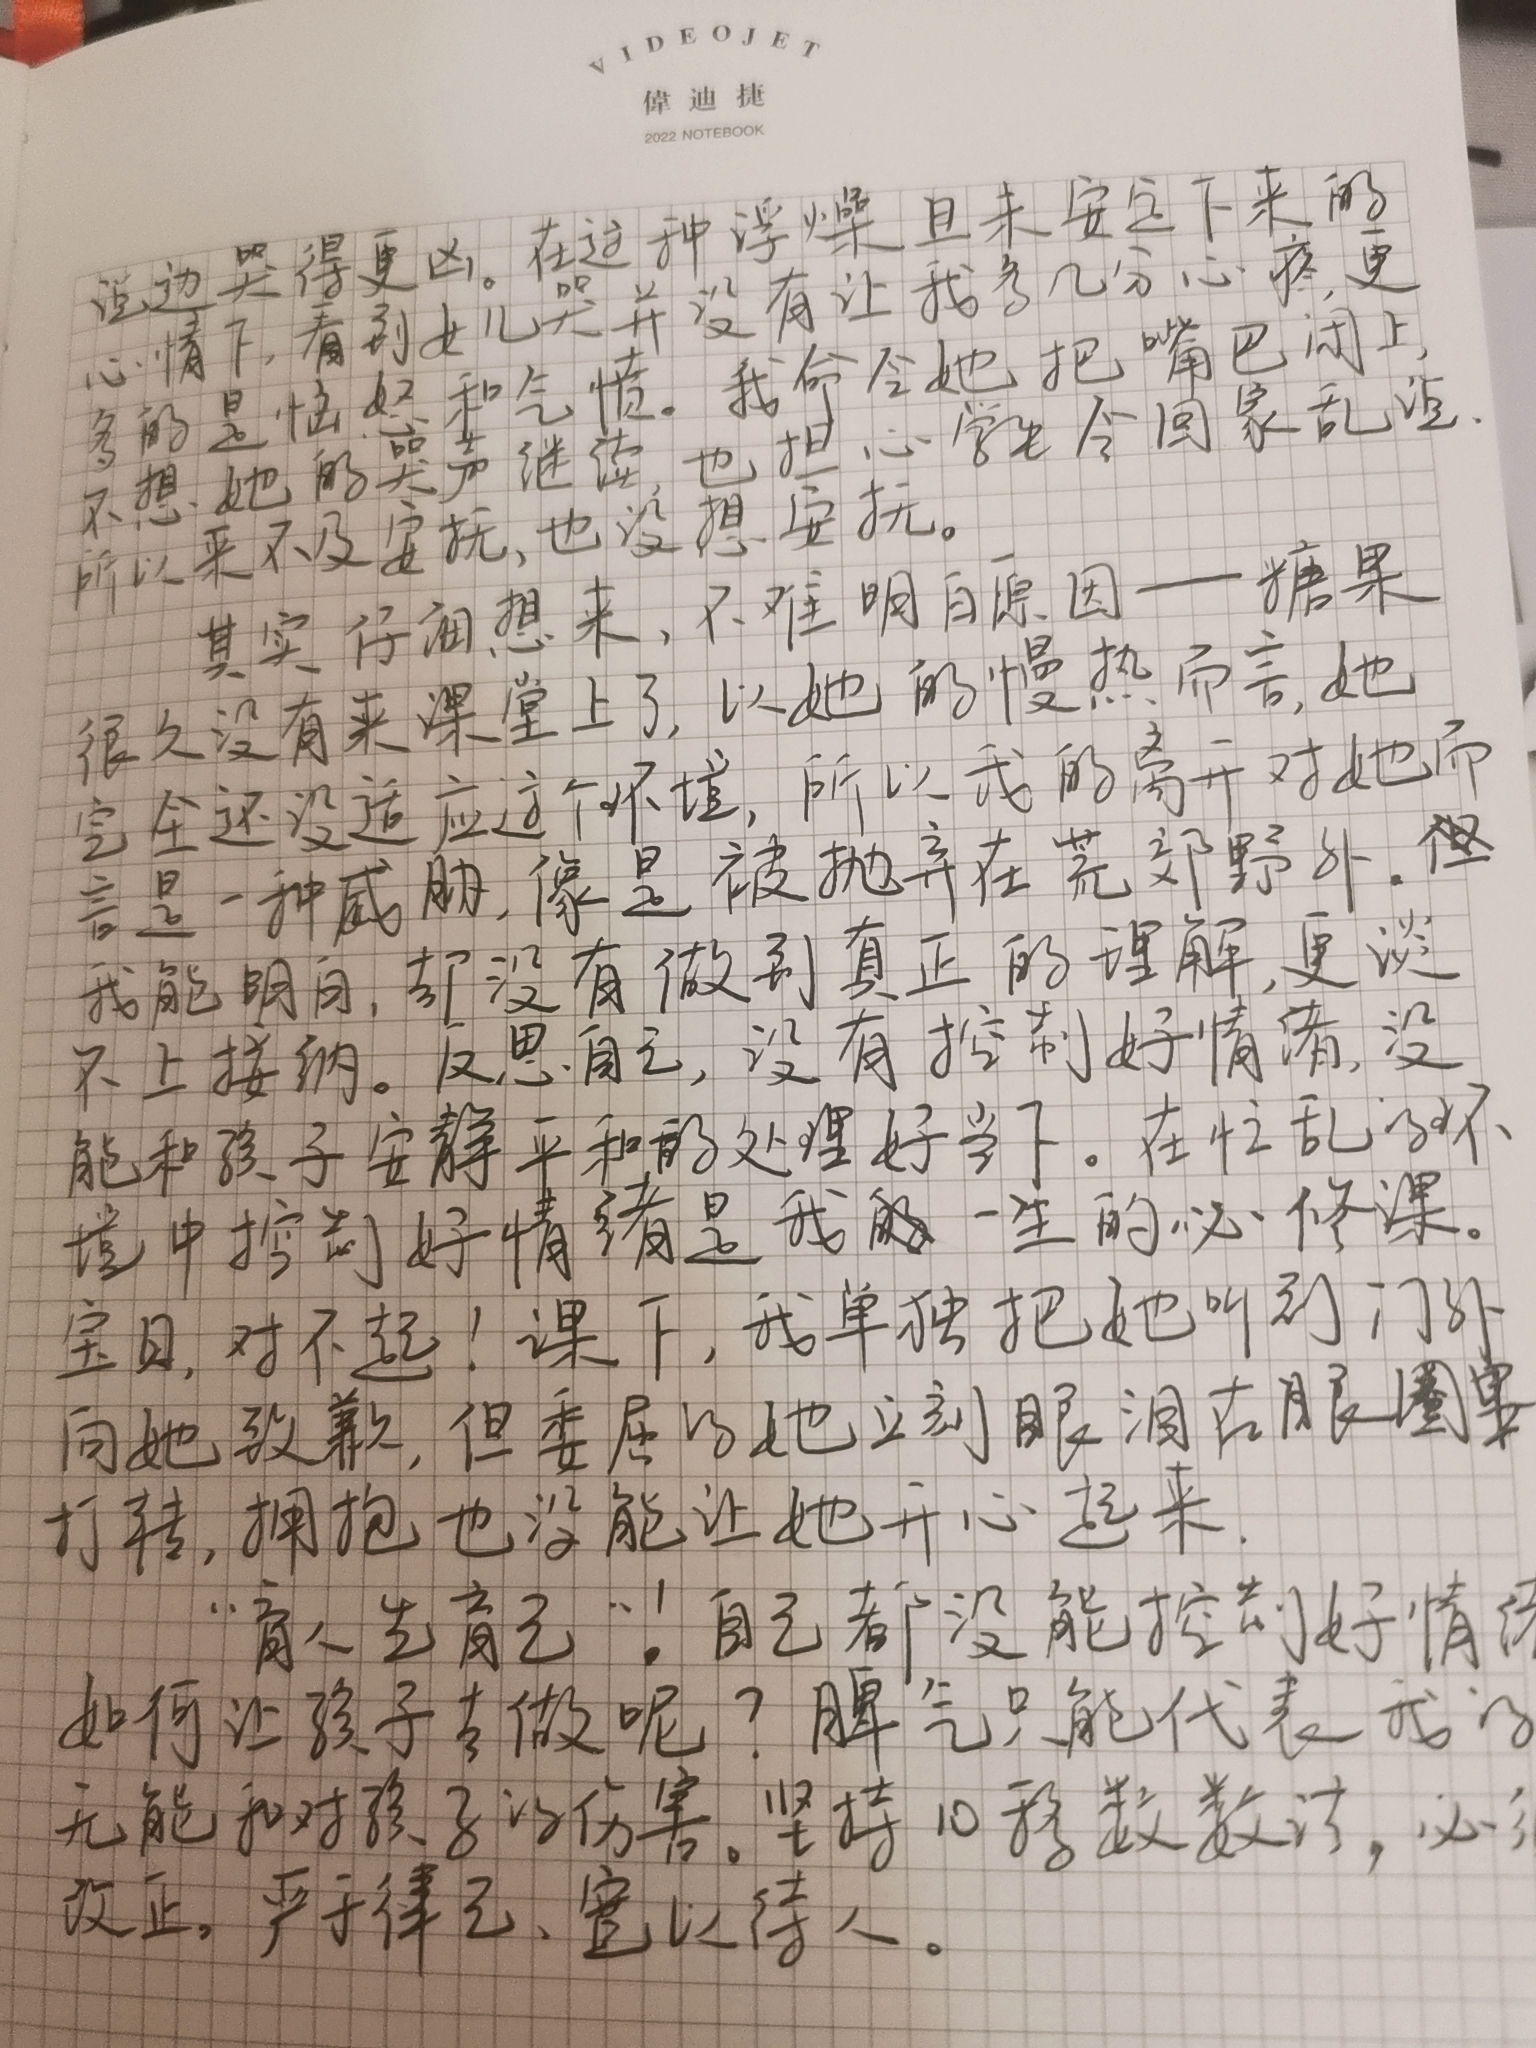 VIDEOJET
偉迪捷
2022 NOTEBOOK
说边哭得更凶。在这种浮燥且未安定下来的
心情下,看到女儿哭并没有让我多几分心疼,更
多的是恼怒和气愤。我命令她把嘴巴闭上,
不想她的哭声继续,也担心学生会回家乱说.
所以来不及安抚,也没想安抚。
其实仔细想来,不难明白原因——糖果
很久没有来课堂上了,以她的慢热而言,她
完全还没适应这个环境,所以我的离开对她而
言是一种威胁,像是被抛弃在荒郊野外。但
我能明白,却没有做到真正的理解,更谈
不上接纳。反思自己,没有控制好情绪,没
能和孩子安静平和的处理好当下。在忙乱的环
境中控制好情绪是我的一生的必修课。
宝贝,对不起!课下,我单独把她叫到门外
向她致歉,但委屈的她立刻眼泪在眼圈里
打转,拥抱也没能让她开心起来.
“育人先育己”!自己都没能控制好情绪
如何让孩子去做呢?脾气只能代表我的
无能和对孩子的伤害。坚持10秒数数法,必须
改正。严于律己、宽以待人。